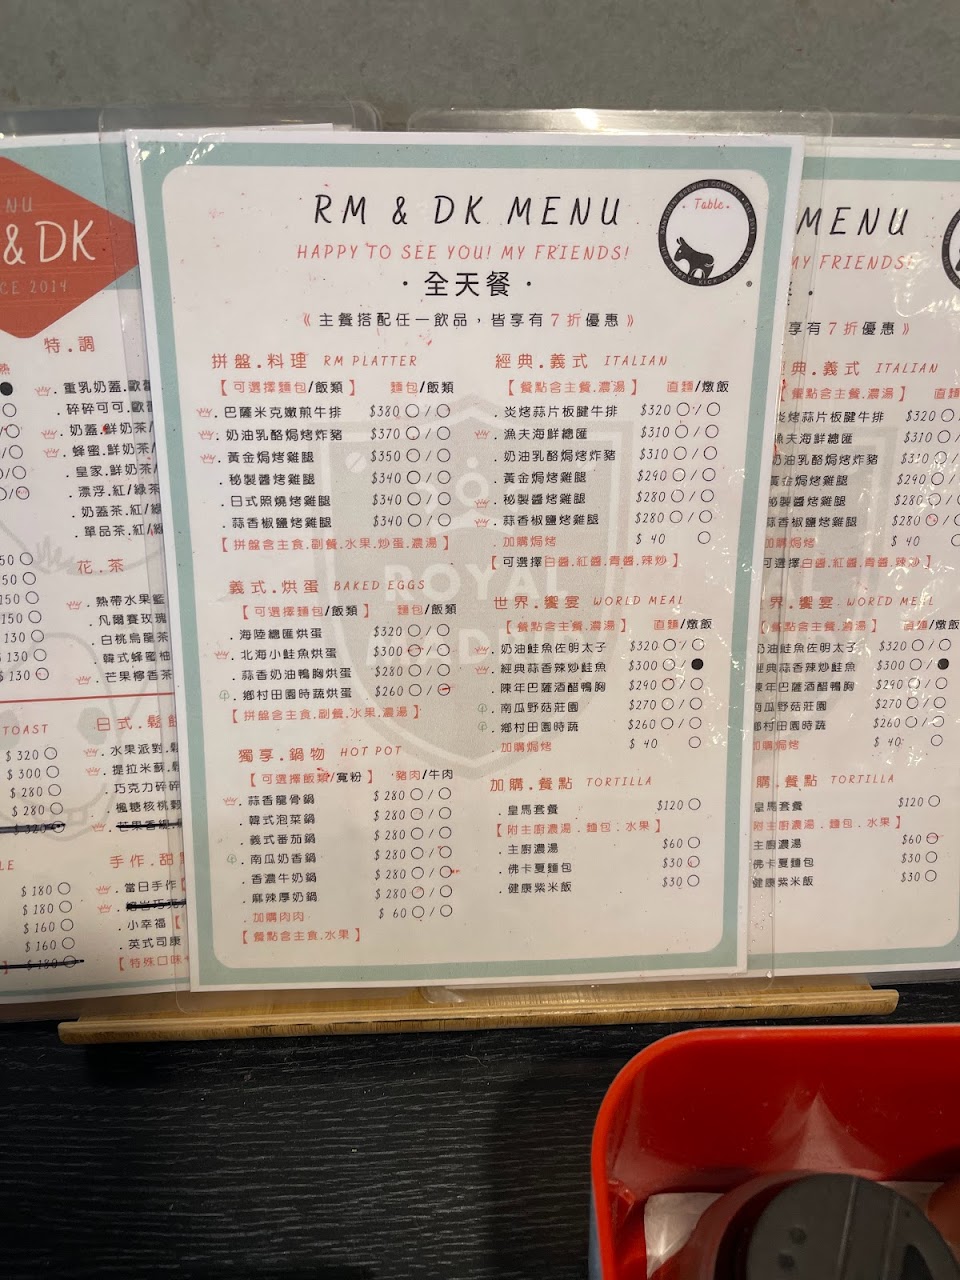 RM & DK MENU
HAPPY TO SEE YOU! MY FRIENDS!
Table.
·全天餐·
《主餐搭配任一飲品，皆享有7折優惠》
拼盤.料理 RM PLATTER
【可選擇麵包/飯類】 麵包/飯類
.巴薩米克嫩煎牛排 $380 ○/○
.奶油乳酪焗烤炸豬 $370 ○/○
.黃金焗烤雞腿 $350 ○/○
.秘製醬烤雞腿 $340 ○/○
.日式照燒烤雞腿 $340 ○/○
.蒜香椒鹽烤雞腿 $340 ○/○
【拼盤含主食.副餐.水果.炒蛋.濃湯】
義式.烘蛋 BAKED EGGS
【可選擇麵包/飯類】 麵包/飯類
.海陸總匯烘蛋 $320 ○/○
.北海小鮭魚烘蛋 $300 ○/○
.蒜香奶油鴨胸烘蛋 $280 ○/○
.鄉村田園時蔬烘蛋 $260 ○/○
【拼盤含主食.副餐.水果.濃湯】
獨享.鍋物 HOT POT
【可選擇飯類/寬粉】 豬肉/牛肉
.蒜香龍骨鍋 $280 ○/○
.韓式泡菜鍋 $280 ○/○
.義式番茄鍋 $280 ○/○
.南瓜奶香鍋 $280 ○/○
.香濃牛奶鍋 $280 ○/○
.麻辣厚奶鍋 $280 ○/○
.加購肉肉 $60 ○/○
【餐點含主食.水果】
經典.義式 ITALIAN
【餐點含主餐.濃湯】 直麵/燉飯
.炎烤蒜片板腱牛排 $320 ○/○
.漁夫海鮮總匯 $310 ○/○
.奶油乳酪焗烤炸豬 $310 ○/○
.黃金焗烤雞腿 $290 ○/○
.秘製醬烤雞腿 $280 ○/○
.蒜香椒鹽烤雞腿 $280 ○/○
.加購焗烤 $ 40 ○
【可選擇白醬.紅醬.青醬.辣炒】
世界.饗宴 WORLD MEAL
【餐點含主餐.濃湯】 直麵/燉飯
.奶油鮭魚佐明太子 $320 ○/○
.經典蒜香辣炒鮭魚 $300 ○/●
.陳年巴薩酒醋鴨胸 $290 ○/○
.南瓜野菇莊園 $270 ○/○
.鄉村田園時蔬 $260 ○/○
.加購焗烤 $ 40 ○
加購.餐點 TORTILLA
.皇馬套餐 $120 ○
【附主廚濃湯.麵包.水果】
.主廚濃湯 $60 ○
.佛卡夏麵包 $30 ○
.健康紫米飯 $30 ○
ROYAL
& DK
特.調
.重乳奶蓋.歐
.碎碎可可.歐
.奶蓋.鮮奶茶/
.蜂蜜.鮮奶茶/
.皇家.鮮奶茶/
.漂浮.紅/綠茶
.奶蓋茶.紅/
.單品茶.紅/
花.茶
.熱帶水果籃
.凡爾賽玫瑰
.白桃烏龍茶
.韓式蜂蜜柚
.芒果檸香茶
150 ○
130 ○
$130 ○
$130 ○
TOAST
$320 ○
$300 ○
$280 ○
$280 ○
$320 ○
日式.鬆餅
.水果派對.鬆
.提拉米蘇.鬆
.巧克力碎碎
.楓糖核桃穀
手作.甜
$180 ○
$180 ○
$160 ○
$160 ○
$180 ○
.當日手作【
.小幸福【
.英式司康
【特殊口味
MENU
MY FRIENDS!
享有7折優惠》
典.義式 ITALIAN
餐點含主餐.濃湯】 直麵
炎烤蒜片板腱牛排 $320 ○
漁夫海鮮總匯 $310 ○/
奶油乳酪焗烤炸豬 $310 ○/
黃金焗烤雞腿 $290 ○/
秘製醬烤雞腿 $280 ○/
蒜香椒鹽烤雞腿 $280 ○/
加購焗烤 $ 40 ○
可選擇白醬.紅醬.青醬.辣炒】
界.饗宴 WORLD MEAL
餐點含主餐.濃湯】 直麵/燉飯
奶油鮭魚佐明太子 $320 ○/○
經典蒜香辣炒鮭魚 $300 ○/●
陳年巴薩酒醋鴨胸 $290 ○/○
南瓜野菇莊園 $270 ○/○
鄉村田園時蔬 $260 ○/○
加購焗烤 $ 40 ○
購.餐點 TORTILLA
皇馬套餐 $120 ○
附主廚濃湯.麵包.水果】
主廚濃湯 $60 ○
佛卡夏麵包 $30 ○
健康紫米飯 $30 ○